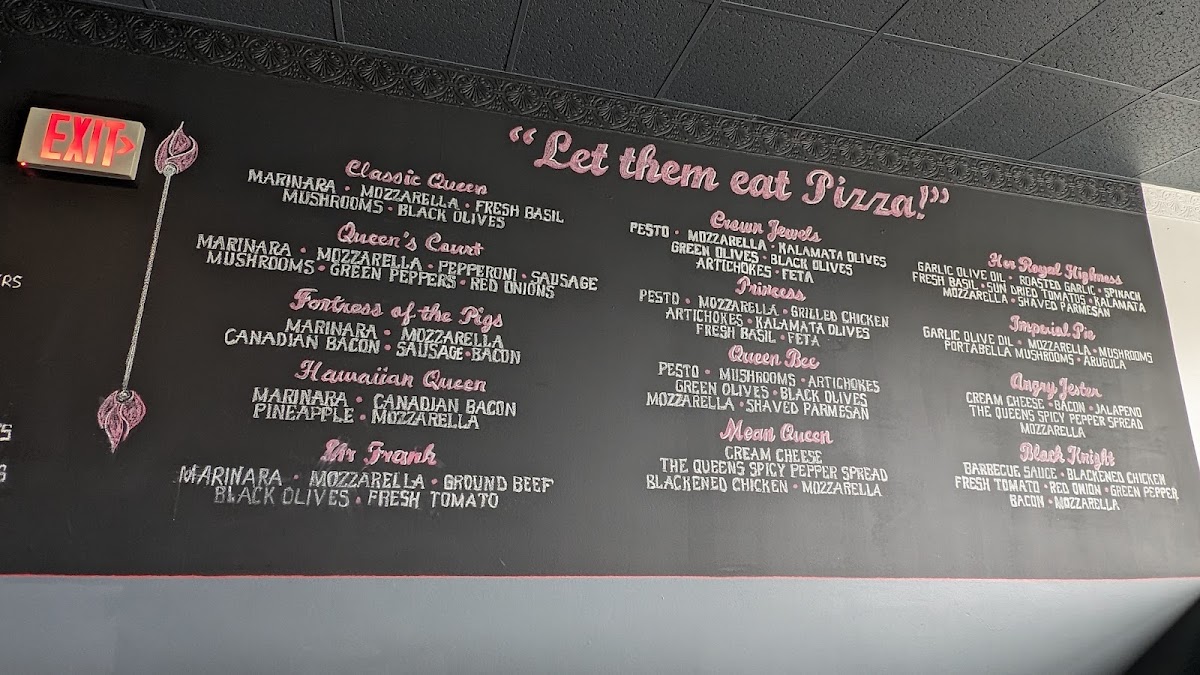 EXIT
"Let them eat Pizza!"
Classic Queen
MARINARA • MOZZARELLA • FRESH BASIL
MUSHROOMS • BLACK OLIVES
Queen's Court
MARINARA • MOZZARELLA • PEPPERONI • SAUSAGE
MUSHROOMS • GREEN PEPPERS • RED ONIONS
Fortress of the Pigs
MARINARA • MOZZARELLA
CANADIAN BACON • SAUSAGE • BACON
Hawaiian Queen
MARINARA • CANADIAN BACON
PINEAPPLE • MOZZARELLA
Mr Frank
MARINARA • MOZZARELLA • GROUND BEEF
BLACK OLIVES • FRESH TOMATO
Crown Jewels
PESTO • MOZZARELLA • KALAMATA OLIVES
GREEN OLIVES • BLACK OLIVES
ARTICHOKES • FETA
Princess
PESTO • MOZZARELLA • GRILLED CHICKEN
ARTICHOKES • KALAMATA OLIVES
FRESH BASIL • FETA
Queen Bee
PESTO • MUSHROOMS • ARTICHOKES
GREEN OLIVES • BLACK OLIVES
MOZZARELLA • SHAVED PARMESAN
Mean Queen
CREAM CHEESE
THE QUEENS SPICY PEPPER SPREAD
BLACKENED CHICKEN • MOZZARELLA
Her Royal Highness
GARLIC OLIVE OIL • ROASTED GARLIC • SPINACH
FRESH BASIL • SUN DRIED TOMATOS • KALAMATA
MOZZARELLA • SHAVED PARMESAN
Imperial Pie
GARLIC OLIVE OIL • MOZZARELLA • MUSHROOMS
PORTABELLA MUSHROOMS • ARUGULA
Angry Jester
CREAM CHEESE • BACON • JALAPENO
THE QUEENS SPICY PEPPER SPREAD
MOZZARELLA
Black Knight
BARBECUE SAUCE • BLACKENED CHICKEN
FRESH TOMATO • RED ONION • GREEN PEPPER
BACON • MOZZARELLA